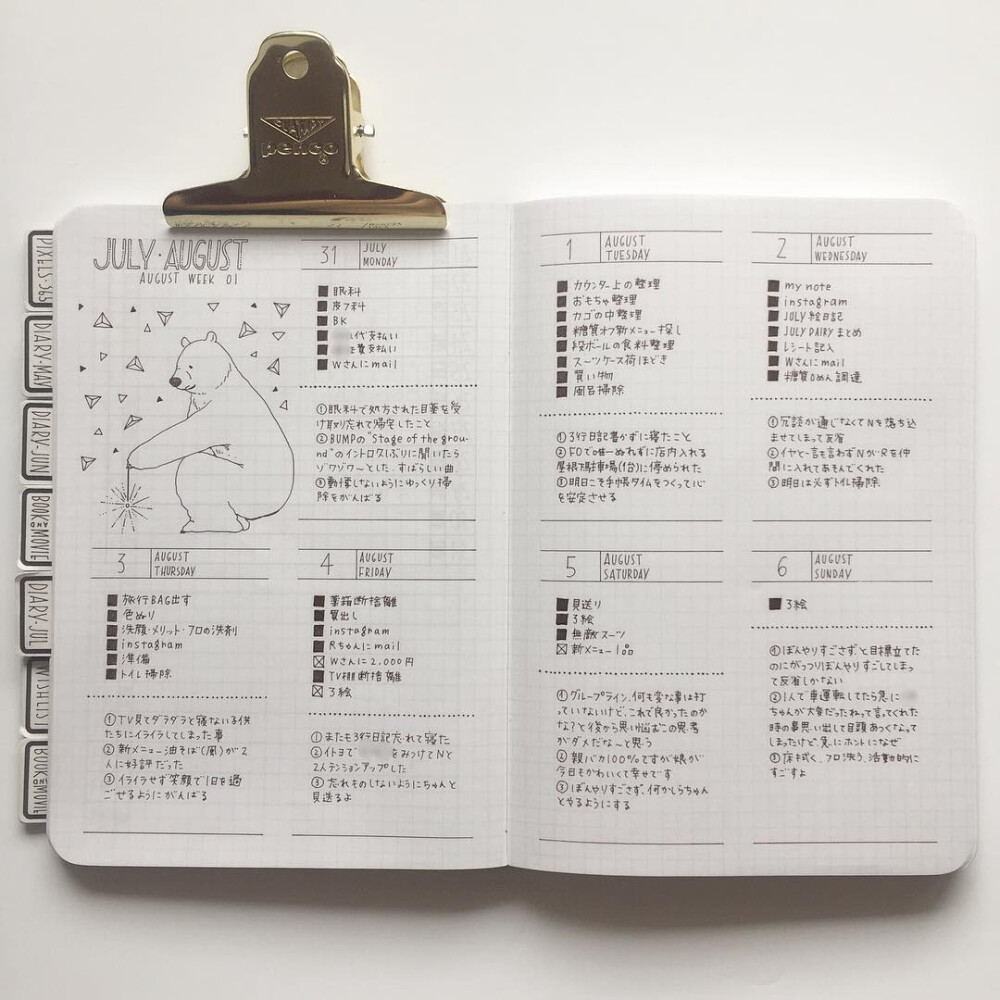 CLAMPY
penco
®
PIXELS·365
DIARY·MAY
DIARY·JUN
BOOK AND MOVIE
DIARY·JUL
WISHLIST
BOOK AND MOVIE
JULY·AUGUST
AUGUST WEEK 01
31 JULY
MONDAY
眼科
皮フ科
BK
代支払い
費支払い
Wさんにmail
①眼科で処方された目薬を受
け取り忘れて帰宅したこと
②BUMPの"Stage of the grou-
nd"のイントロ久しぶりに聞いたら
ゾワゾワ〜とした。すばらしい曲
③動揺しないようにゆっくり掃
除をがんばる
1 AUGUST
TUESDAY
カウンター上の整理
おもちゃ整理
カゴの中整理
糖質オフ新メニュー探し
段ボールの食料整理
スーツケース荷ほどき
買い物
風呂掃除
①3行日記書かずに寝たこと
②FOで唯一ぬれずに店内入れる
屋根下駐車場(1台)に停められた
③明日こそ手帳タイムをつくって心
を安定させる
2 AUGUST
WEDNESDAY
my note
instagram
JULY 絵日記
JULY DAIRY まとめ
レシート記入
Wさんにmail
糖質0めん調達
①冗談が通じなくてNを落ち込
ませてしまって反省
②イヤと一言も言わずNがRを仲
間に入れてあそんでくれた
③明日は必ずトイレ掃除
3 AUGUST
THURSDAY
旅行BAG出す
色ぬり
洗顔・メリット・フロの洗剤
instagram
準備
トイレ掃除
①TV見てダラダラと寝ない子供
たちにイライラしてしまった事
②新メニュー油そば(風)が2
人に好評だった
③イライラせず笑顔で1日を過
ごせるようにがんばる
4 AUGUST
FRIDAY
薬箱断捨離
買出し
instagram
Rちゃんにmail
Wさんに2,000円
TV棚断捨離
3絵
①またも3行日記忘れて寝た
②イトヨで をみつけてNと
2人テンションアップした
③忘れものしないようにちゃんと
見送るよ
5 AUGUST
SATURDAY
見送り
3絵
無敵スーツ
新メニュー1品
①グループライン、何も変な事は打
っていないけど、これで良かったのか
な?と後から思い悩むこの思考
がダメだな〜と思う
②親バカ100%ですが娘が
今日もかわいくて幸せです
③ぼんやりすごさず、何かしらちゃん
とやるようにする
6 AUGUST
SUNDAY
3絵
①ぼんやりすごさずと目標立てた
のにがっつりぼんやりすごしてしまっ
て反省しかない
②1人で車運転してたら急に
ちゃんが大変だったねって言ってくれた
時の事思い出して目頭あっくなって
しまったけど、急にホントになぜ
③床拭く、フロ洗う、活動的に
すごすよ